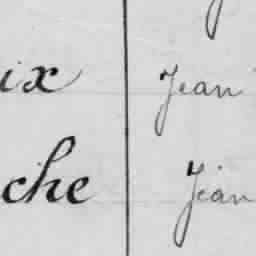 ix Jean
che Jean